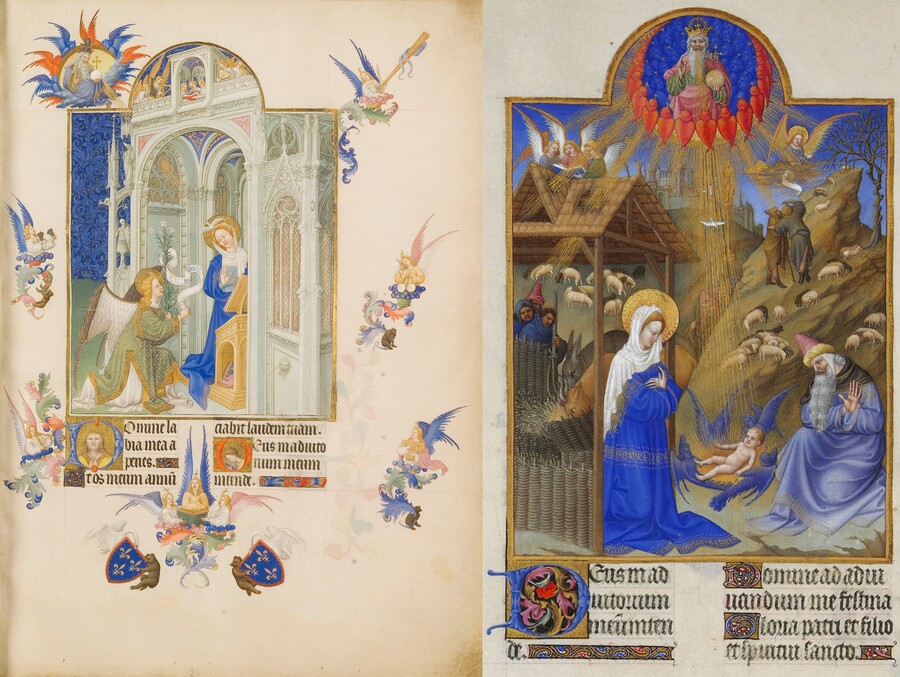 Domine la
bia mea a
peries.
Et os meum annū
ciabit laudem tuam.
Deus in adiuto
rium meum
intende.
Deus in ad
iutorium
meū inten
de.
Domine ad adiu
uandum me festina
Gloria patri et filio
et spiritui sancto.